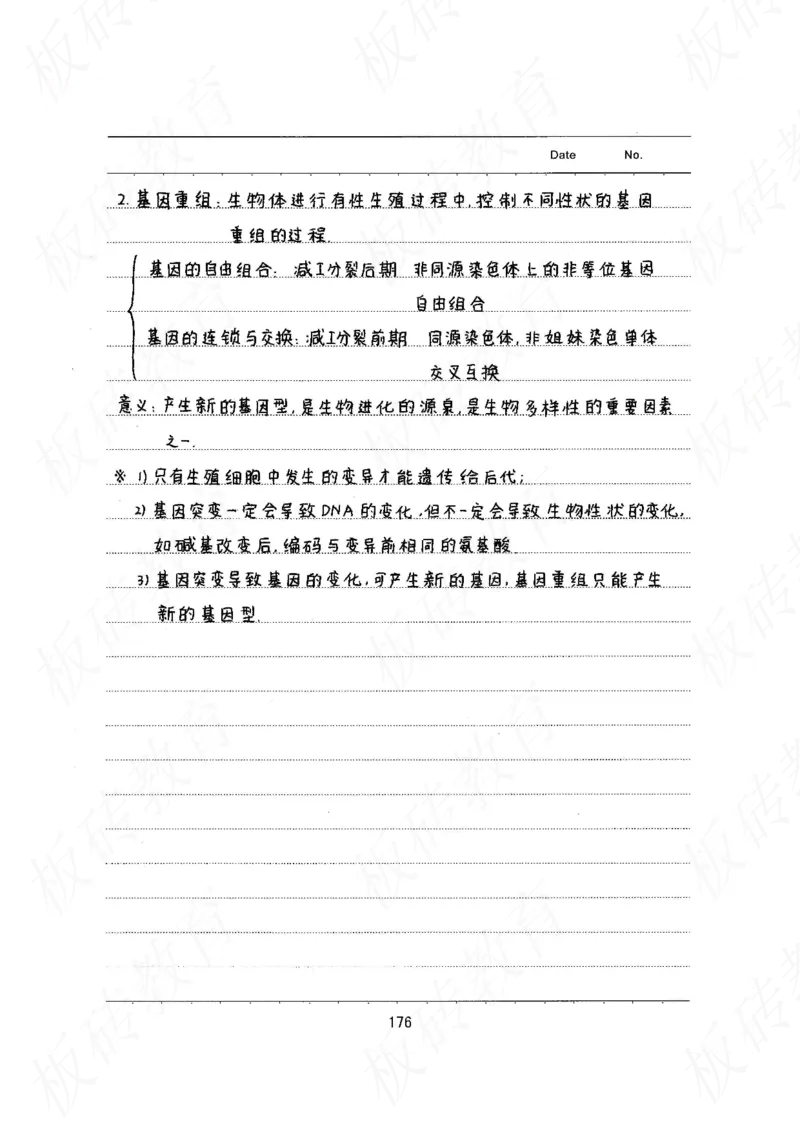 Date No.
2. 基因重组:生物体进行有性生殖过程中,控制不同性状的基因
重组的过程.
基因的自由组合: 减I分裂后期 非同源染色体上的非等位基因
自由组合
基因的连锁与交换:减I分裂前期 同源染色体,非姐妹染色单体
交叉互换
意义:产生新的基因型,是生物进化的源泉,是生物多样性的重要因素
之一.
※ 1)只有生殖细胞中发生的变异才能遗传给后代;
2) 基因突变一定会导致DNA的变化,但不一定会导致生物性状的变化,
如碱基改变后,编码与变异前相同的氨基酸
3) 基因突变导致基因的变化,可产生新的基因,基因重组只能产生
新的基因型.
176
板砖教育